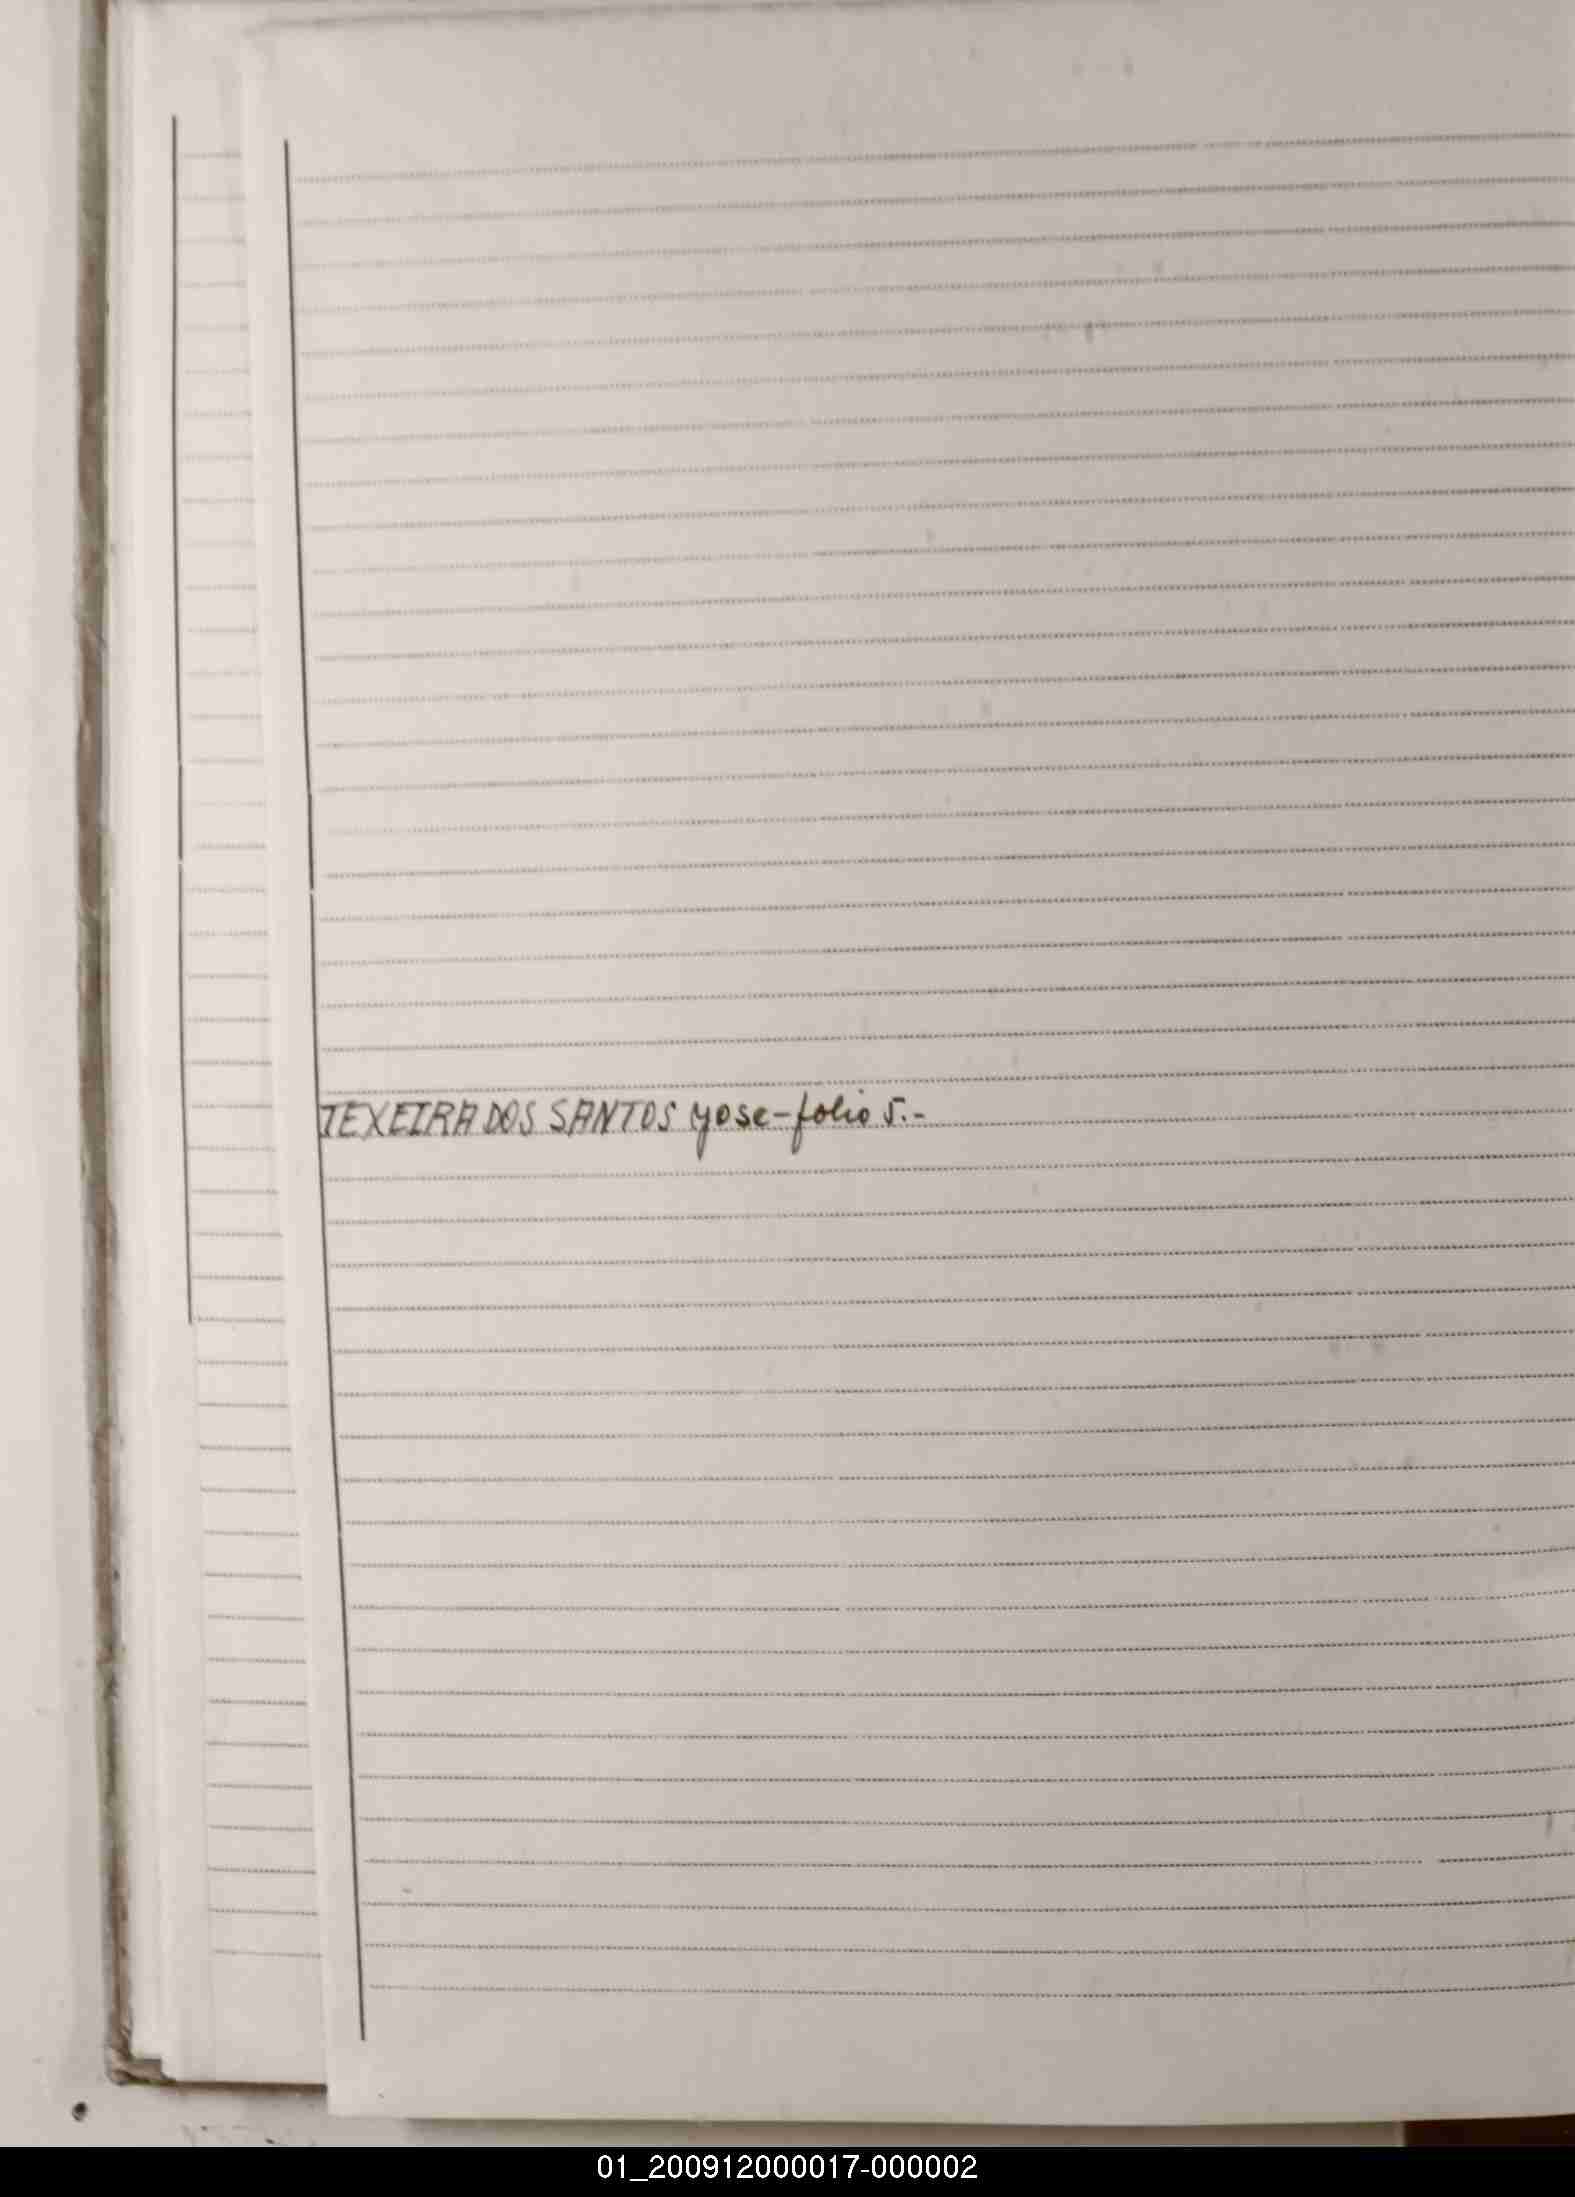 TEXEIRA DOS SANTOS yose-folio 5.-
01_200912000017-000002